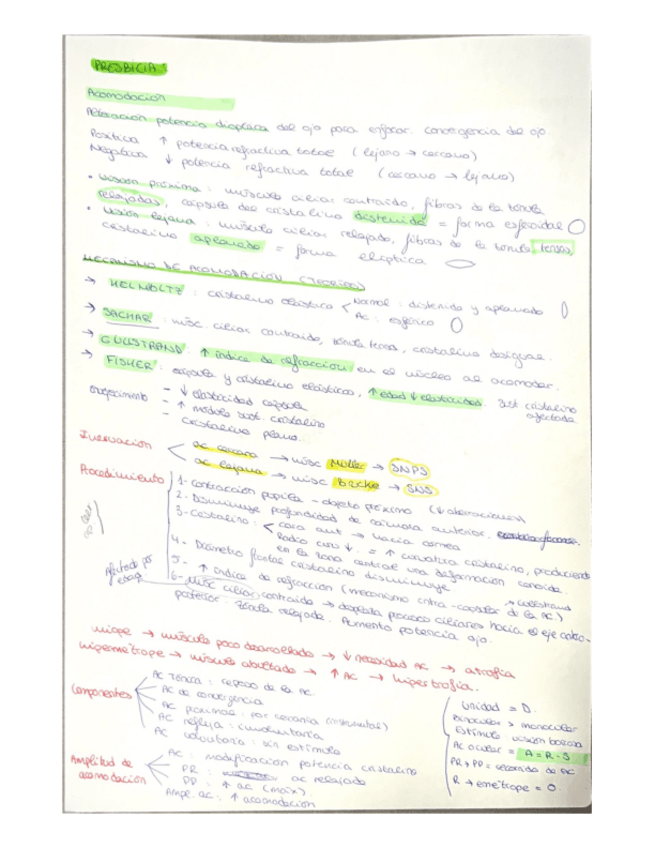 PRESBICIA:
Acomodación
Alteración potencia dióptrica del ojo para enfocar. Convergencia del ojo
Positiva ↑ potencia refractiva total (lejano → cercano)
Negativa ↓ potencia refractiva total (cercano → lejano)
• Visión próxima: músculo ciliar contraído, fibras de la zónula
relajadas, cápsula del cristalino distendida = forma esferoidal
• Visión lejana: músculo ciliar relajado, fibras de la zónula tensas
cristalino aplanado = forma elíptica
MECANISMO DE ACOMODACIÓN (TEORÍAS)
→ HELMOLTZ: cristalino elástico < Normal: distenido y aplanado
Ac: esférico
→ SACHAR: músc. ciliar contraído, zónula tensa, cristalino desigual.
→ GULLSTRAND: ↑ índice de refracción en el núcleo al acomodar.
→ FISHER: cápsula y cristalino elásticos, ↑ edad ↓ elasticidad. Sust cristalino
afectada
envejecimiento - ↓ elasticidad cápsula
- ↑ módulo sust. cristalino
- cristalino plano.
Inervación
ac cercana → músc Müller → SNPS
ac lejana → músc Brücke → SNS
Procedimiento
1- Contracción pupila - objeto próximo (↓ aberraciones)
2- Disminuye profundidad de cámara anterior.
3- Cristalino: < cara ant → hacia cornea
Radio curv ↓. = ↑ curvatura cristalino, produciendo
en la zona central una deformación conoide.
4- Diámetro frontal cristalino disminuye
5- ↑ índice de refracción (mecanismo intra-capsular de la AC)
→ Gullstrand
6- Músc ciliar contraído → desplaza procesos ciliares hacia el eje antero-
posterior. Zónula relajada. Aumento potencia ojo.
Afectado por
edad
miope → músculo poco desarrollado → ↓ necesidad AC → atrofia
hipermétrope → músculo abultado → ↑ AC → hipertrofia.
Componentes
AC tónica: reposo de la AC
AC de convergencia
AC proximal: por cercanía (instrumentos)
AC refleja: involuntaria
AC voluntaria: sin estímulo
Amplitud de
acomodación
AC: modificación potencia cristalino
PR: ac relajada
PP: ↑ ac (máx)
Ampl. ac: ↑ acomodación
Unidad = D.
Binocular > monocular
Estímulo visión borrosa
Ac ocular = A = R - S
PR → PP = recorrido de AC
R → emétrope = 0.